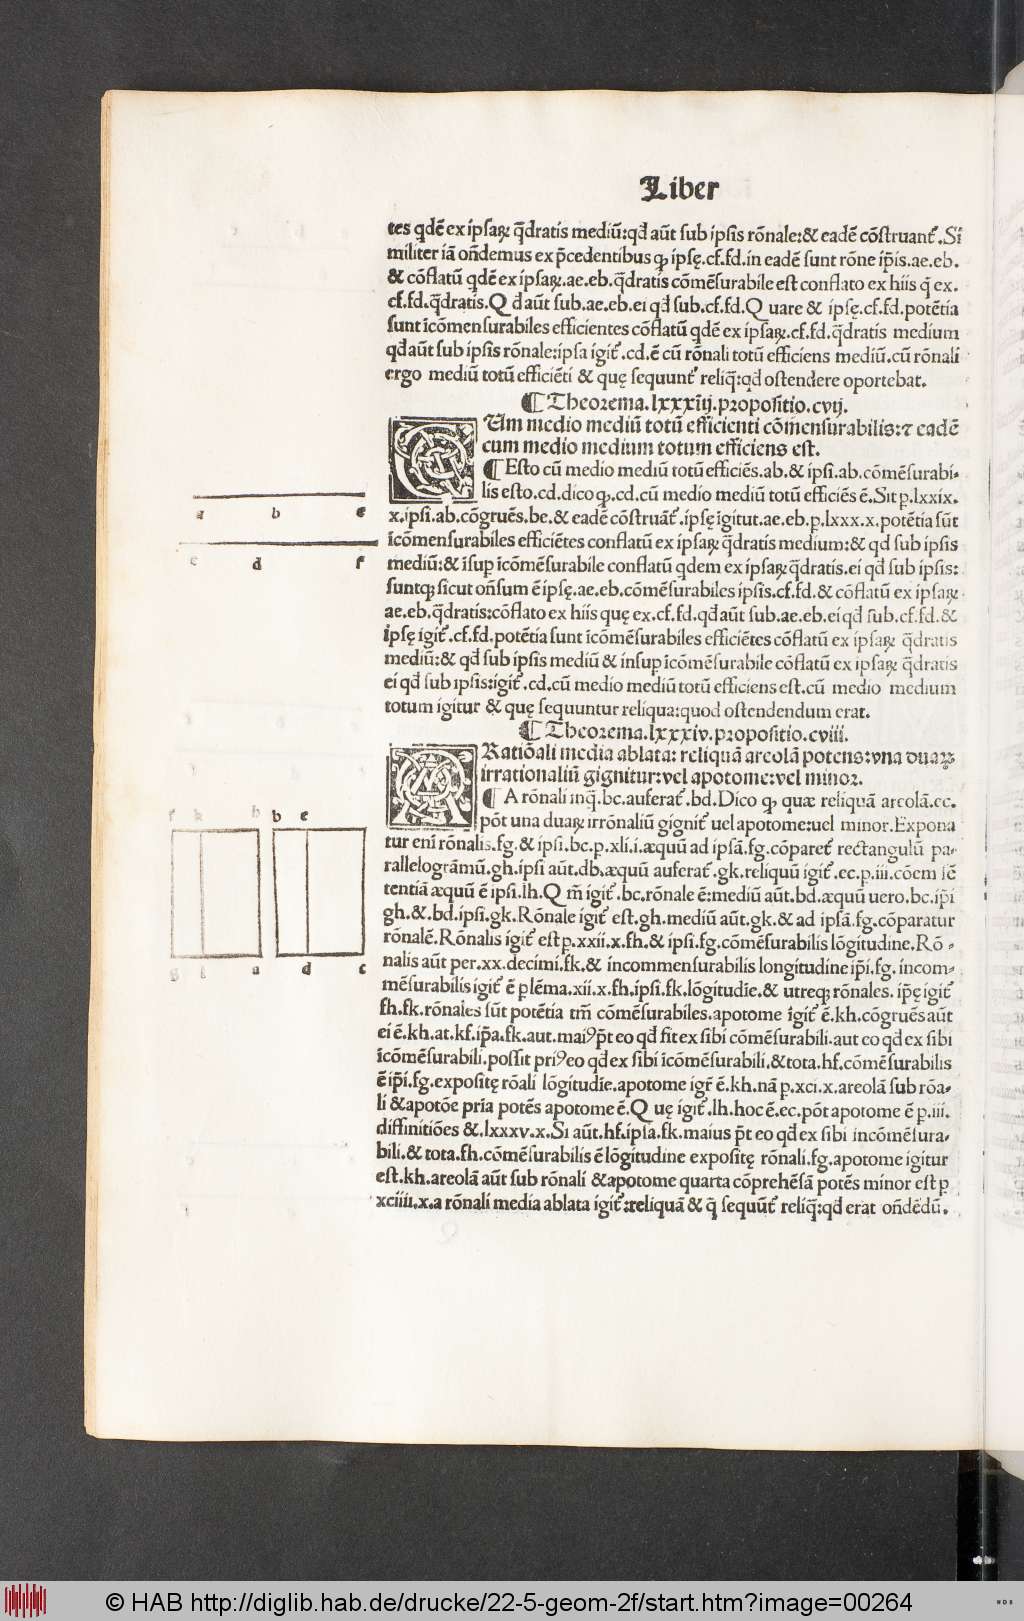 Liber
tes qdẽ ex ipsaꝝ q̃dratis mediũ:qđ aũt sub ipsis rõnale:& eadẽ cõstruant᷑.Si
militer iã oñdemus ex p̃cedentibus ꝙ ipsę.cf.fd.in eadẽ sunt rõne ip̃is.ae.eb.
& cõflatũ qdẽ ex ipsaꝝ.ae.eb.q̃dratis cõmẽsurabile est conflato ex hiis q̃ ex.
cf.fd.q̃dratis.Q đ aũt sub.ae.eb.ei qđ sub.cf.fd.Q uare & ipsę.cf.fd.potẽtia
sunt ĩcõmensurabiles efficientes cõflatũ qdẽ ex ipsaꝝ.cf.fd.q̃dratis medium
qđ aũt sub ipsis rõnale:ipsa igit᷑.cd.ẽ cũ rõnali totũ efficiens mediũ.cũ rõnali
ergo mediũ totũ efficiẽti & quę sequunt᷑ reliq̃:qđ ostendere oportebat.
¶ Theorema.lxxxiij.propositio.cvij.
CUm medio mediũ totũ efficienti cõmensurabilis:⁊ eadẽ
cum medio medium totum efficiens est.
¶ Esto cũ medio mediũ totũ efficiẽs.ab.& ipsi.ab.cõmẽsurabi-
lis esto.cd.dico ꝙ.cd.cũ medio mediũ totũ efficiẽs ẽ.Sit ꝑ.lxxix.
a b e
x.ipsi.ab.cõgruẽs.be.& eadẽ cõstruãt᷑.ipsę igitut.ae.eb.ꝑ.lxxx.x.potẽtia sũt
ĩcõmensurabiles efficiẽtes conflatũ ex ipsaꝝ q̃dratis medium:& qđ sub ipsis
c d f
mediũ:& ĩsuꝑ ĩcõmẽsurabile conflatũ qdem ex ipsaꝝ q̃dratis.ei qđ sub ipsis:
suntqꝫ sicut oñsum ẽ ipsę.ae.eb.cõmẽsurabiles ipsis.cf.fd.& cõflatũ ex ipsaꝝ
ae.eb.q̃dratis:cõflato ex hiis quę ex.cf.fd.qđ aũt sub.ae.eb.ei qđ sub.cf.fd.&
ipsę igit᷑.cf.fd.potẽtia sunt ĩcõmẽsurabiles efficiẽtes cõflatũ ex ipsaꝝ q̃dratis
mediũ:& qđ sub ipsis mediũ & insuꝑ ĩcõmẽsurabile cõflatũ ex ipsaꝝ q̃dratis
ei qđ sub ipsis:igit᷑.cd.cũ medio mediũ totũ efficiens est.cũ medio medium
totum igitur & quę sequuntur reliqua:quod ostendendum erat.
¶ Theorema.lxxxiv.propositio.cviii.
ARatiõali media ablata: reliquã areolã potens:vna duaꝝ
irrationaliũ gignitur:vel apotome:vel minor.
¶ A rõnali inq̃.bc.auferat᷑.bd.Dico ꝙ quæ reliquã areolã.ec.
f k h b e
põt una duaꝝ irrõnaliũ gignit᷑ uel apotome:uel minor.Expona
tur eni rõnalis.fg.& ipsi.bc.ꝑ.xli.i.æquũ ad ipsã.fg.cõparet᷑ rectangulũ pa-
rallelogrãmũ.gh.ipsi aũt.db.æquũ auferat᷑.gk.reliquũ igit᷑.ec.ꝑ.iii.cõem sẽ
tentiã æquũ ẽ ipsi.lh.Q m̃ igit᷑.bc.rõnale ẽ:mediũ aũt.bd.æquũ uero.bc.ip̃i
gh.&.bd.ipsi.gk.Rõnale igit᷑ est.gh.mediũ aũt.gk.& ad ipsã.fg.cõparatur
rõnalẽ.Rõnalis igit᷑ est ꝑ.xxii.x.fh.& ipsi.fg.cõmẽsurabilis lõgitudine.Rõ-
g l a d c
nalis aũt per.xx.decimi.fk.& incommensurabilis longitudine ip̃i.fg.incom-
mẽsurabilis igit᷑ ẽ ꝑ lẽma.xii.x.fh.ipsi.fk.lõgitudĩe.& utreqꝫ rõnales.ip̃ę igit᷑
fh.fk.rõnales sũt potẽtia tm̃ cõmẽsurabiles.apotome igit᷑ ẽ.kh.cõgruẽs aũt
ei ẽ.kh.at.kf.ip̃a.fk.aut.maiꝰ p̃t eo qđ fit ex sibi cõmẽsurabili.aut eo qđ ex sibi
ĩcõmẽsurabili.possit priꝰ eo qđ ex sibi ĩcõmẽsurabili.& tota.hf.cõmẽsurabilis
ẽ ip̃i.fg.expositę rõali lõgitudĩe.apotome igr̃ ẽ.kh.nã ꝑ.xci.x.areolã sub rõa-
li & apotõe pria potẽs apotome ẽ.Q uę igit᷑.lh.hoc ẽ.ec.põt apotome ẽ ꝑ.iii.
diffinitiões &.lxxxv.x.Si aũt.hf.ipsa.fk.maius p̃t eo qđ ex sibi incõmẽsura-
bili.& tota.fh.cõmẽsurabilis ẽ lõgitudine expositę rõnali.fg.apotome igitur
est.kh.areolã aũt sub rõnali & apotome quarta cõprehẽsã potẽs minor est ꝑ
xciiii.x.a rõnali media ablata igit᷑:reliquã & q̃ sequũt᷑ reliq̃:qđ erat oñdẽdũ.
© HAB http://diglib.hab.de/drucke/22-5-geom-2f/start.htm?image=00264